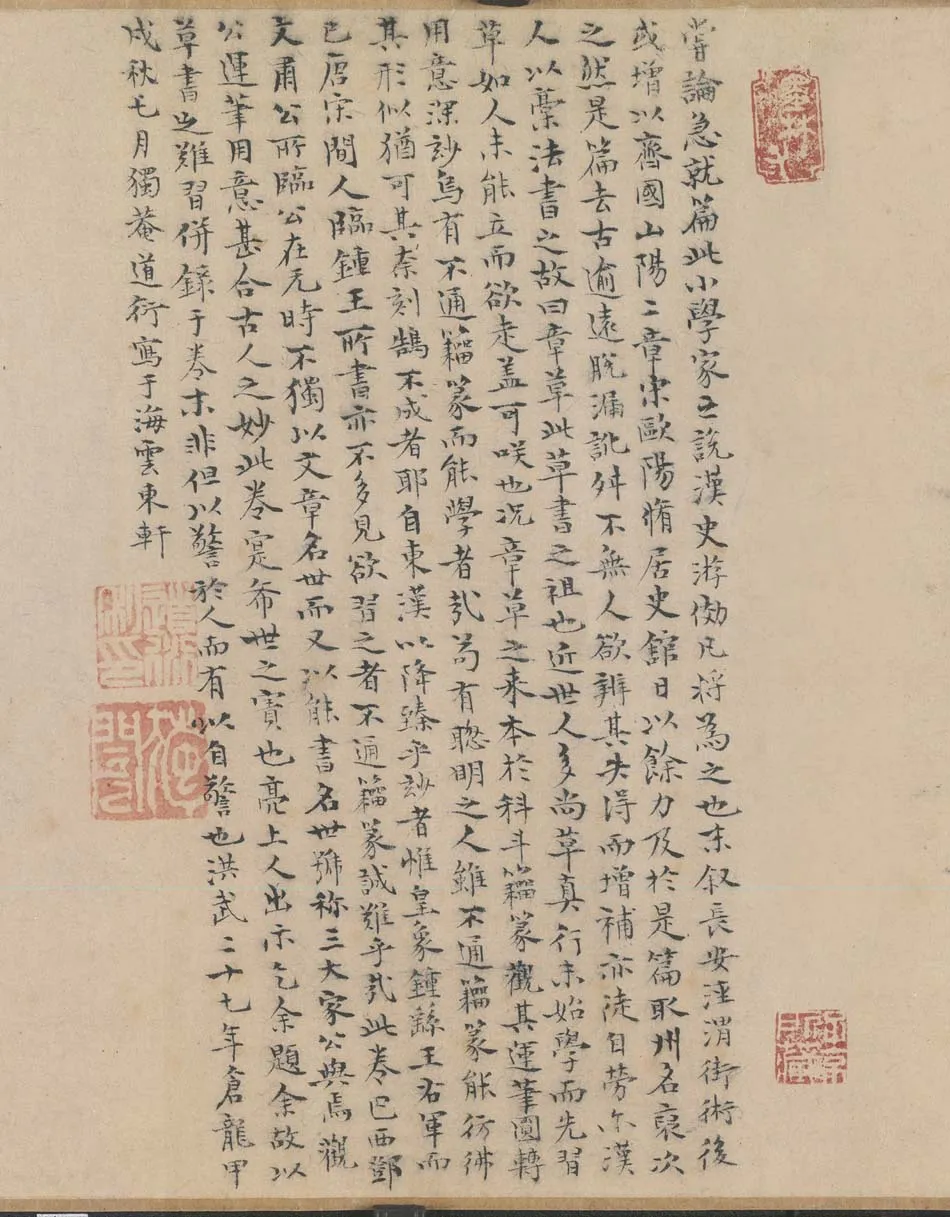 嘗論急就篇此小學家之說漢史游倣凡將為之也末叙長安涇渭街術後
或增以齊國山陽二章宋歐陽脩居史館日以餘力及於是篇取州名裒次
之然是篇去古逾遠脫漏訛舛不無人欲辨其失得而增補亦徒自勞尔漢
人以藁法書之故曰章草此草書之祖也近世人多尚草真行未始學而先習
草如人未能立而欲走盖可咲也况章草之来本於科斗籀篆觀其運筆圓轉
用意深玅烏有不通籀篆而能學者㢤苟有聦明之人雖不通籀篆能彷彿
其形似猶可其奈刻鵠不成者耶自東漢以降臻乎玅者惟皇象鍾繇王右軍而
已唐宋間人臨鍾王所書亦不多見欲習之者不通籀篆誠難乎㢤此卷巴西鄧
文肅公所臨公在元時不獨以文章名世而又以能書名世號称三大家公與焉觀
公運筆用意甚合古人之妙此卷寔希世之寳也亮上人出示乞余題余故以
草書之難習併錄于卷末非但以警於人而有以自警也洪武二十七年倉龍甲
戌秋七月獨菴道衍寫于海雲東軒